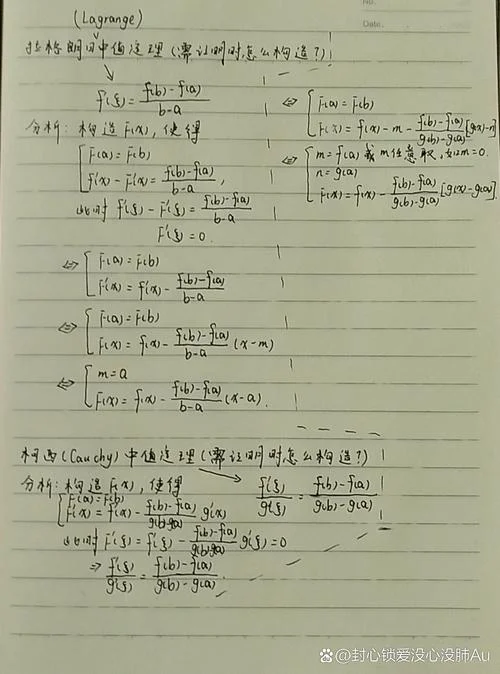 No.
Date.
(Lagrange)
拉格朗日中值定理(需证明时怎么构造?)
f'(ξ) = (f(b)-f(a))/(b-a)
分析: 构造F(x), 使得
{ F(a)=F(b)
f'(x)-F'(x) = (f(b)-f(a))/(b-a),
此时 f'(ξ)-F'(ξ) = (f(b)-f(a))/(b-a)
F'(ξ)=0.
⇔ { F(a)=F(b)
F'(x)=f'(x)-(f(b)-f(a))/(b-a)
⇔ { F(a)=F(b)
F(x)=f(x)-(f(b)-f(a))/(b-a)(x-m)
⇔ { m=a
F(x)=f(x)-(f(b)-f(a))/(b-a)(x-a).
⇔ { F(a)=F(b)
F(x)=f(x)-m-(f(b)-f(a))/(g(b)-g(a))[g(x)-n]
⇔ { m=f(a) 或m任意取, 如m=0.
n=g(a)
F(x)=f(x)-(f(b)-f(a))/(g(b)-g(a))[g(x)-g(a)].
柯西(Cauchy)中值定理(需证明时怎么构造?)
f'(ξ)/g'(ξ) = (f(b)-f(a))/(g(b)-g(a))
分析: 构造F(x), 使得
{ F(a)=F(b)
F'(x)=f'(x)-(f(b)-f(a))/(g(b)-g(a)) g'(x)
此时F'(ξ)=f'(ξ)-(f(b)-f(a))/(g(b)-g(a)) g'(ξ)=0
⇒ f'(ξ)/g'(ξ) = (f(b)-f(a))/(g(b)-g(a)).
@封心锁爱没心没肺Au